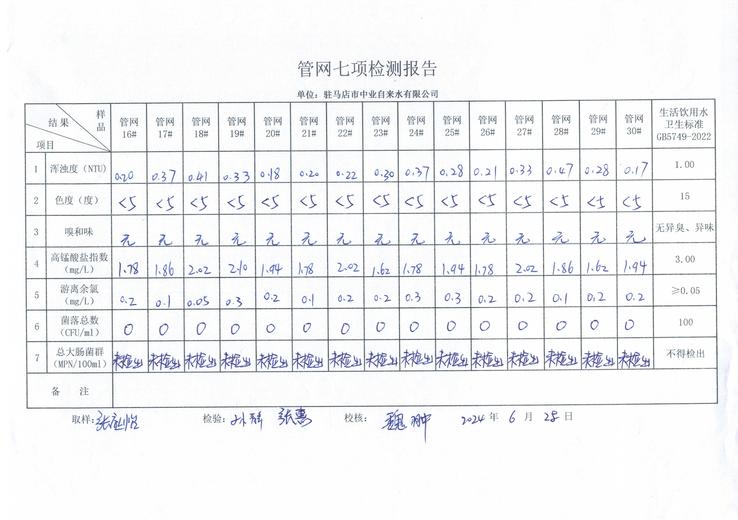 管网七项检测报告
单位：驻马店市中业自来水有限公司
结果 样品 项目 管网16# 管网17# 管网18# 管网19# 管网20# 管网21# 管网22# 管网23# 管网24# 管网25# 管网26# 管网27# 管网28# 管网29# 管网30# 生活饮用水卫生标准GB5749-2022
1 浑浊度（NTU） 0.20 0.37 0.41 0.33 0.18 0.20 0.22 0.30 0.37 0.28 0.21 0.33 0.47 0.28 0.17 1.00
2 色度（度） <5 <5 <5 <5 <5 <5 <5 <5 <5 <5 <5 <5 <5 <5 <5 15
3 嗅和味 无 无 无 无 无 无 无 无 无 无 无 无 无 无 无 无异臭、异味
4 高锰酸盐指数（mg/L） 1.78 1.86 2.02 2.10 1.94 1.78 2.02 1.62 1.78 1.94 1.78 2.02 1.86 1.62 1.94 3.00
5 游离余氯（mg/L） 0.2 0.1 0.05 0.3 0.2 0.1 0.2 0.2 0.3 0.3 0.2 0.2 0.1 0.2 0.2 ≥0.05
6 菌落总数（CFU/ml） 0 0 0 0 0 0 0 0 0 0 0 0 0 0 0 100
7 总大肠菌群（MPN/100ml） 未检出 未检出 未检出 未检出 未检出 未检出 未检出 未检出 未检出 未检出 未检出 未检出 未检出 未检出 未检出 不得检出
备 注
取样： 检验： 张 校核：魏 2024 年 6 月 28 日